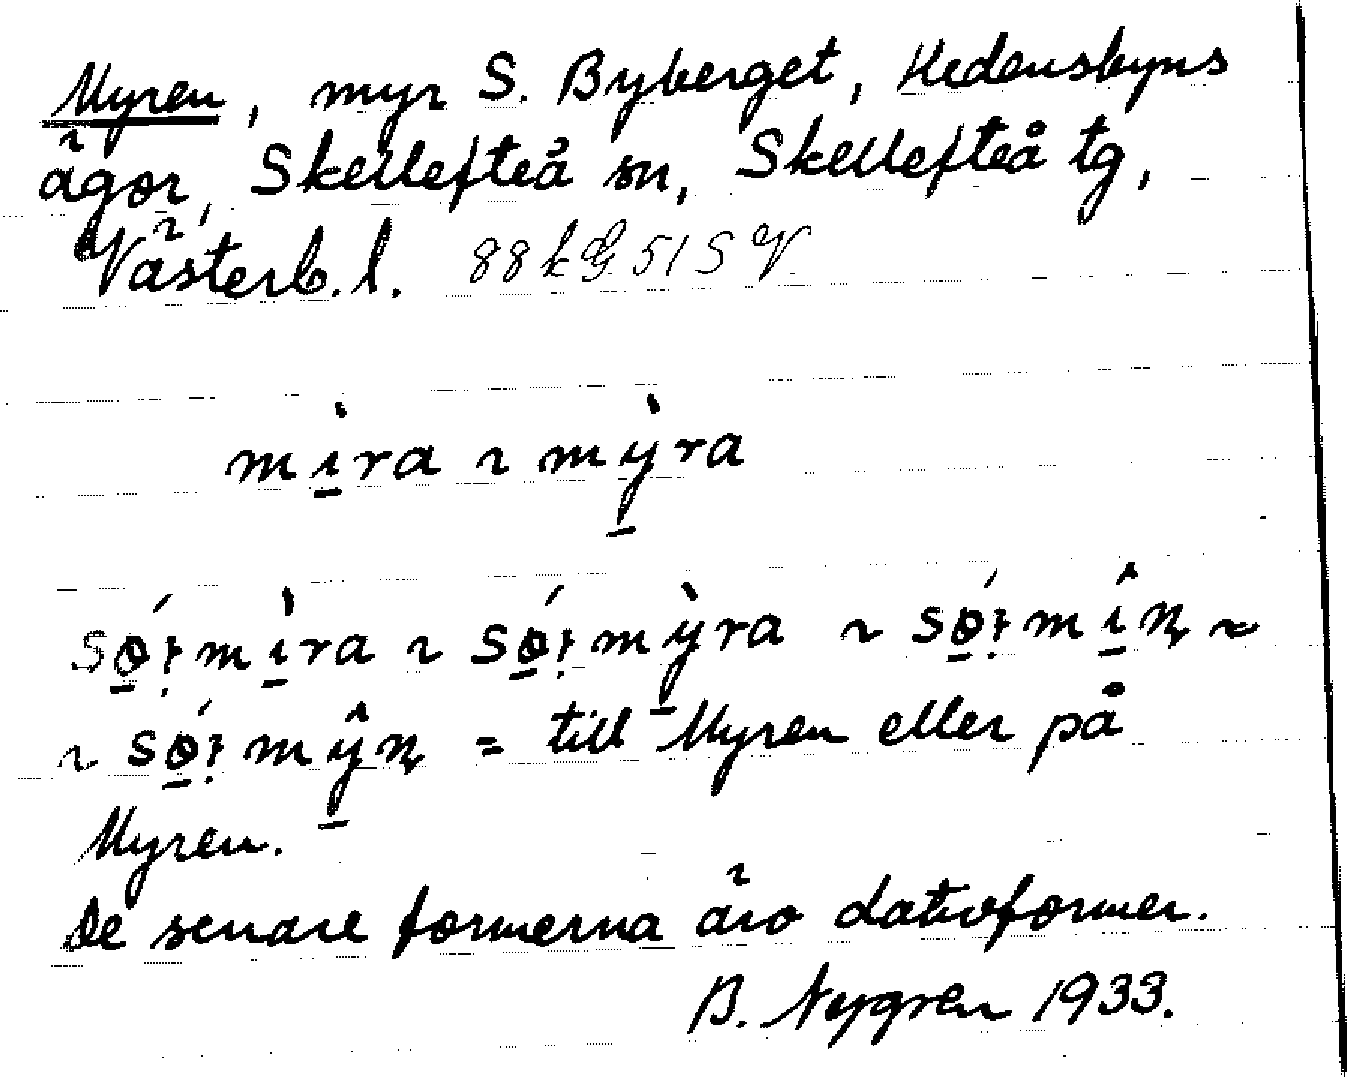 Myren, myr S. Byberget, Hedensbyns
ägor, Skellefteå sn, Skellefteå tg,
Västerb. l. 88kG 51 S V
mı̱̀ra ~ mỳ̱ra
sǿ̱ţmı̱̀ra ~ sǿ̱ţmỳ̱ra ~ sǿ̱ţmı̱̂ɳ ~
~ sǿ̱ţmŷ̱ɳ = till Myren eller på
Myren.
De senare formerna äro dativformer.
B. Nygren 1933.